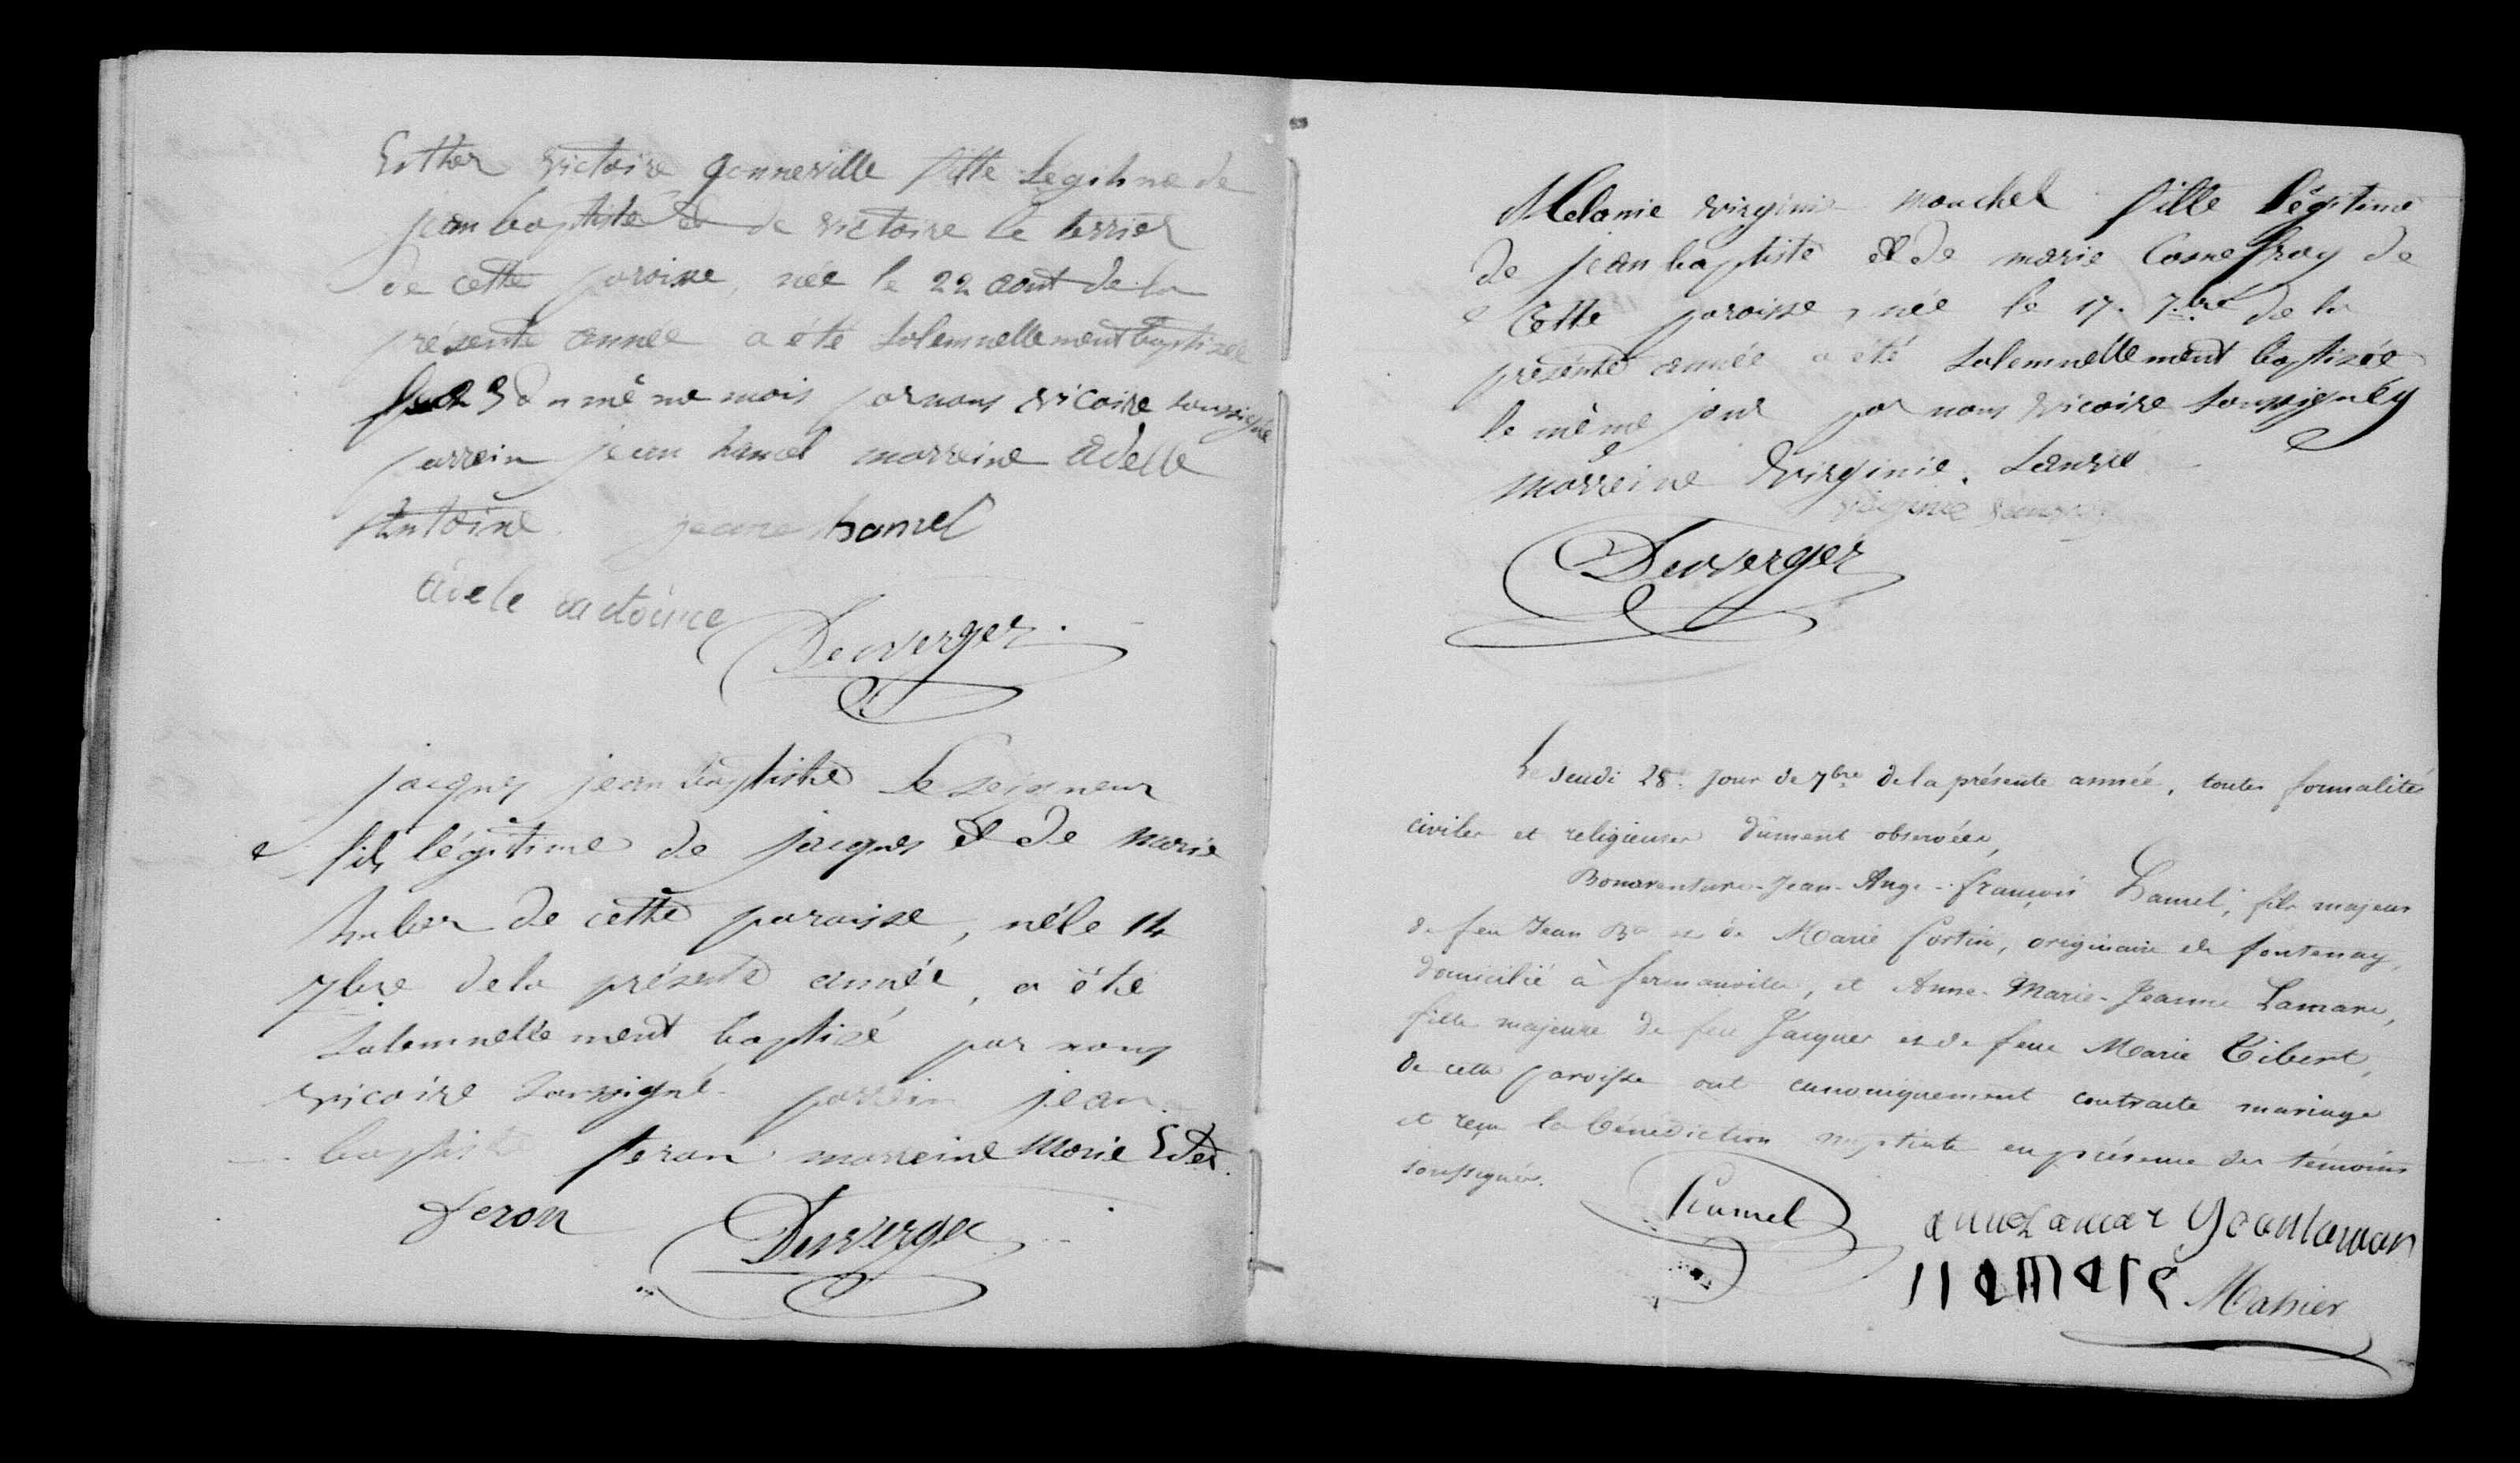 Esther victoire gonneville fille légitime de
jean baptiste et de victoire le terrier
de cette paroisse, née le 22 aout de la
présente année a été solemnellement baptisée
le 23 du même mois par nous vicaire soussigné
parrein jean hamel marreine adelle
Antoine. jean hamel
adele antoine
Duverger
jacques jean baptiste Le seigneur
fils légitime de jacques et de marie
de cette paroisse, né le 14
7bre de la présente année, a été
solemnellement baptisé par nous
vicaire soussigné. parrein jean
baptiste feron marreine marie Ester.
feron Duverger
Melanie virginie mouchel fille légitime
de jean baptiste et de marie Cosnefroy de
cette paroisse, née le 17. 7.bre de la
présente année a été solemnellement baptisée
le même jour par nous vicaire soussigné
marreine virginie.
virginie
Duverger
Le Jeudi 28e jour de 7bre de la présente année, toutes formalités
civiles et religieuses dûment observées,
Bonaventure-Jean-Ange-françois hamel, fils majeur
de feu Jean Bte et de Marie fortin, originaire de fontenay,
domicilié à fermanville, et Anne-Marie-Jeanne Lamare,
fille majeure de feu Jacques et de feue Marie Tibert,
de cette paroisse ont canoniquement contracté mariage
et reçu la bénédiction nuptiale en présence des témoins
soussignés.
hamel anne Lamare Jean lamare
lamare Massier